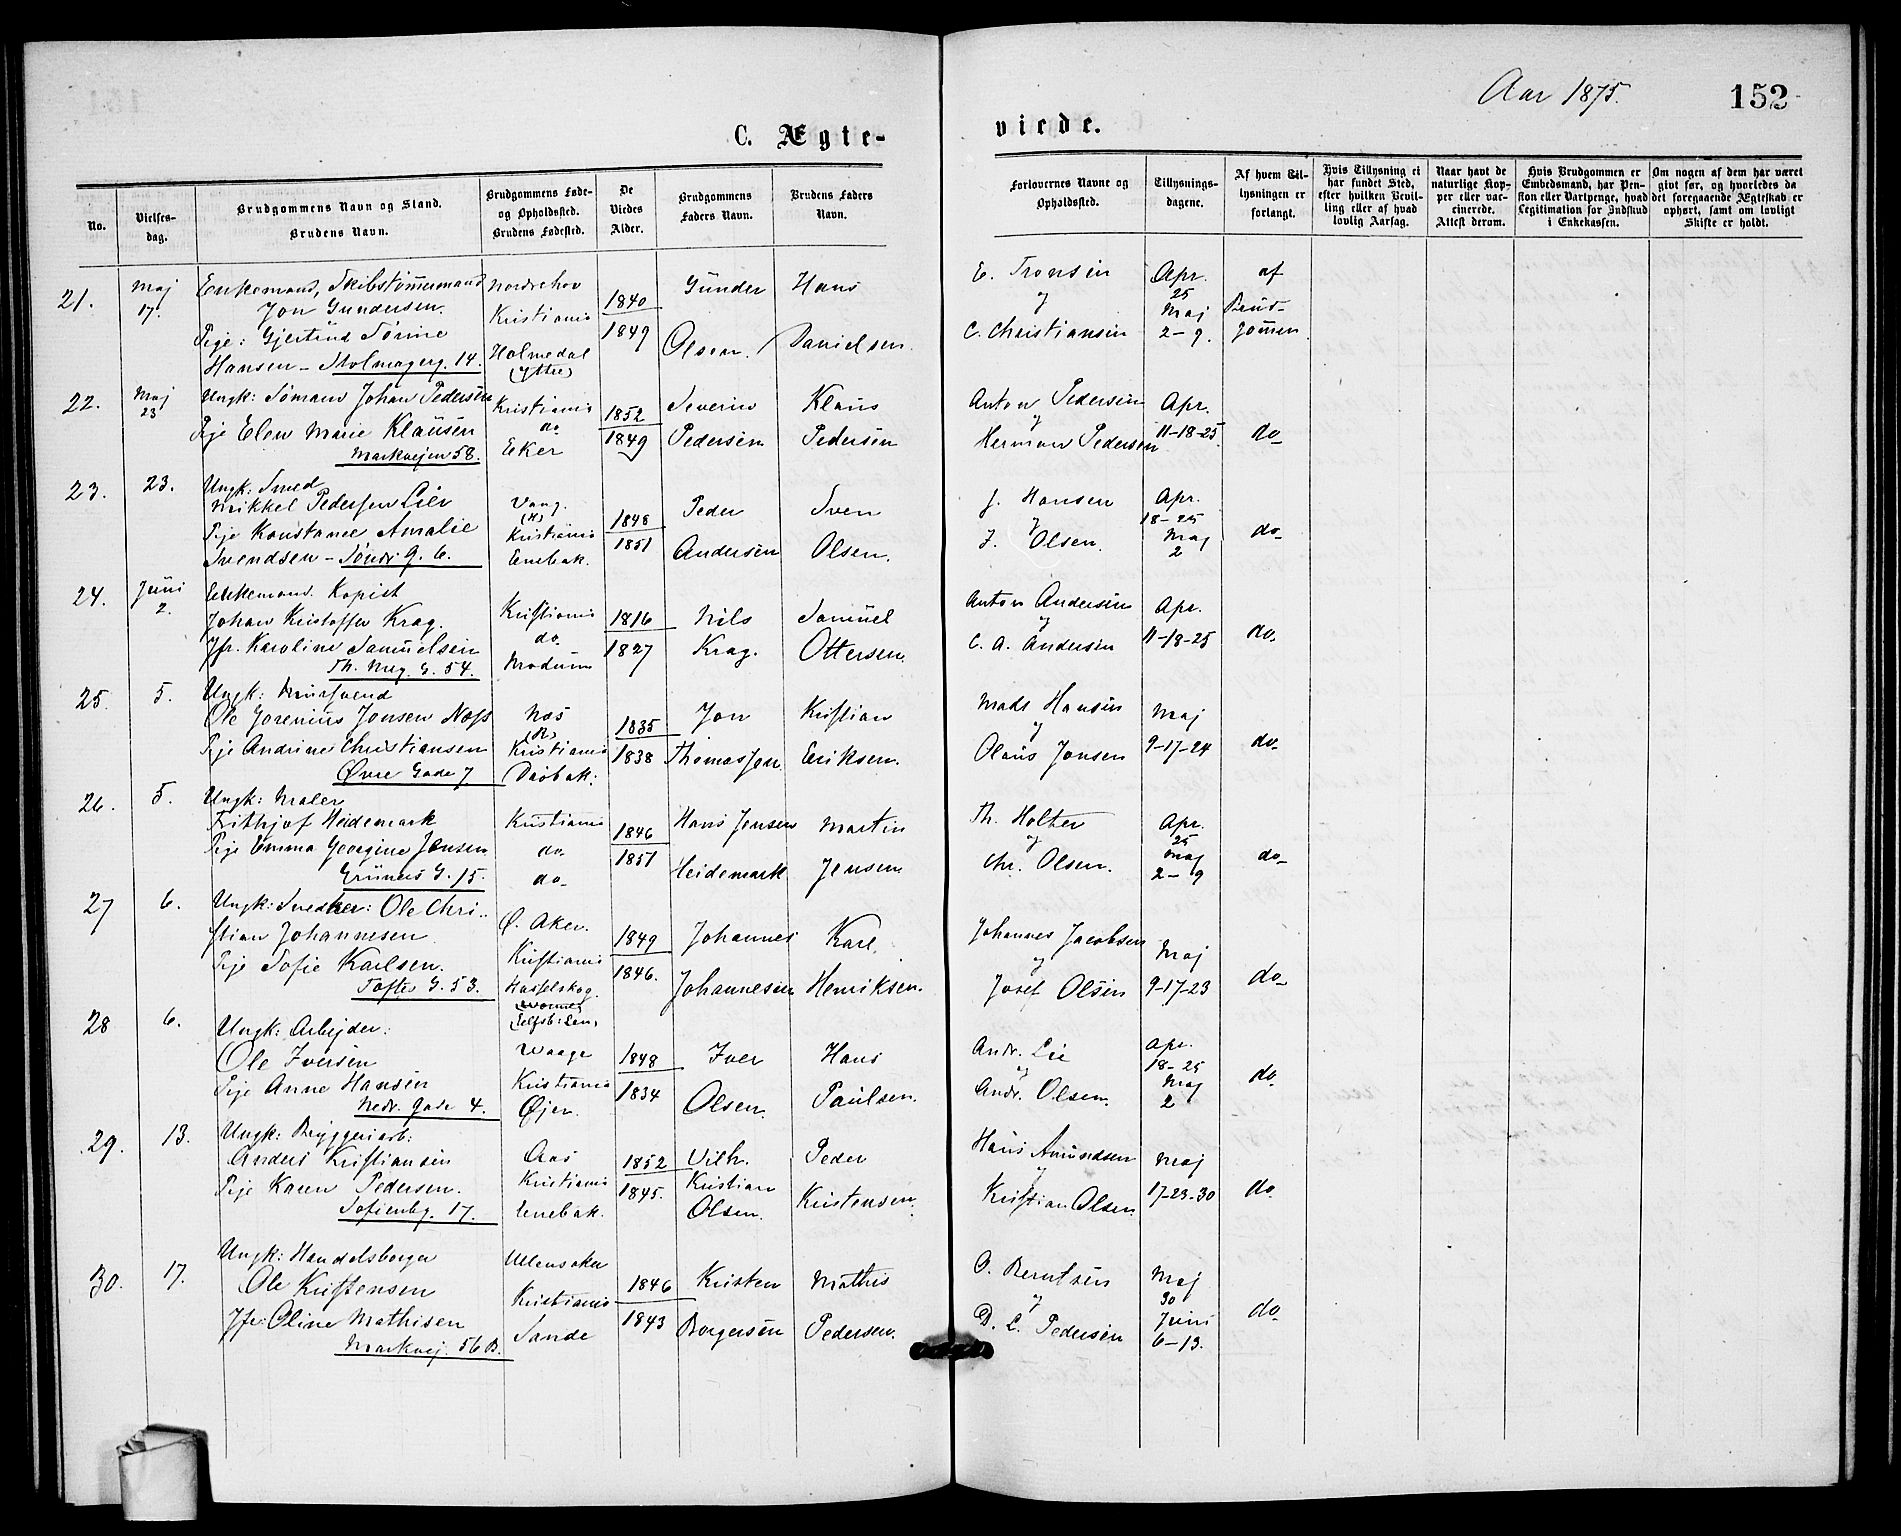 Aar 1875.
152
C. Ægte-
viede.
No.
Vielses-
dag.
Brudgommens Navn og Stand.
Brudens Navn.
Brudgommens Føde-
og Opholdssted.
Brudens Fødested.
De
Viedes
Alder.
Brudgommens
Faders Navn.
Brudens Faders
Navn.
Forlovernes Navne og
Opholdssted.
Tillysnings-
dagene.
Af hvem Til-
lysningen er
forlangt.
Hvis Tillysning ei
har fundet Sted,
efter hvilken Bevil-
ling eller af hvad
lovlig Aarsag.
Naar havt de
naturlige Kop-
per eller vac-
cinerede.
Attest derom.
Hvis Brudgommen er
Embedsmand, har Pen-
sion eller Vartpenge, hvad
Legitimation for Indskud
i Enkekassen.
Om nogen af dem har været
givt før, og hvorledes da
det foregaaende Ægteskab er
ophørt, samt om lovligt
Skifte er holdt.
21.
Maj
17.
Enkemand, Skibstømmermand
Jon Gundersen.
Pige: Gjertrud Sørine
Hansen – Stolmagerg. 14.
Nordrehov
Kristiania
Holmedal
(Yttre)
1840
1849
Gunder
Olsen.
Hans
Danielsen.
E. Tronsen
og
C. Christiansen
Apr.
25
Maj
2-9.
af
Brud-
gommen
22.
Maj
23
Ungk: Sømand Johan Pedersen
Pige Elen Marie Klausen
Markvejen 58.
Kristiania
do
Eker
1852
1849
Severin
Pedersen
Klaus
Pedersen
Anton Pedersen
og
Herman Pedersen
Apr.
11-18-25.
do
23.
23.
Ungk: Smed
Mikkel Pedersen Lien
Pige Konstance Amalie
Svendsen – Søndr. g. 6.
Vang.
(H)
Kristiania
Enebak.
1848
1851
Peder
Andersen
Sven
Olsen.
J. Hansen
og
J. Olsen.
Apr.
18-25
Maj
2
do
24.
Juni
2.
Enkemand. Kopist
Johan Kristoffer Krag.
Jfr. Karoline Samuelsen
Th. Mey. G. 54.
Kristiania
do.
Modum
1816
1827
Nils
Krag.
Samuel
Ottersen.
Anton Andersen
og
C. A. Andersen
Apr.
11-18-25
do.
25.
5.
Ungk: Mursvend
Ole Jorenius Jonsen Næss
Pige Andrine Christiansen
Øvre Gade 7
Næs
(R)
Kristiania
Drøbak.
1835
1838
Jon
Thomassen
Kristian
Eriksen.
Mads Hansen
og
Olaus Jonsen
Maj
9-17-24
do
26.
5.
Ungk: Maler
Frithjof Heidemark
Pige Emma Georgine Jensen
Grüners G. 15.
Kristiania
do
do
1846
1851
Hans Jensen
Heidemark
Martin
Jensen
Th. Holter
og
Chr. Olsen.
Apr.
25
Maj
2-9
do
27
6.
Ungk: Snedker: Ole Chri-
stian Johannesen
Pige Sofie Karlsen.
Toftes G. 53.
Ø. Aker.
Kristiania
Hasselskog.
1849
1846.
Johannes
Johannesen
Karl
Henriksen.
Johannes Jacobsen
og
Josef Olsen
Maj
9-17-23
do
28
6.
Ungk: Arbejder:
Ole Iversen
Pige Anne Hansen
Nedr. Gade 4.
Waage
Kristiania
Øjer.
1848
1834
Iver
Olsen.
Hans
Paulsen.
Andr. Lie
og
Andr. Olsen.
Apr.
18-25
Maj
2
do
29.
13.
Ungk: Bryggeriarb:
Anders Kristiansen
Pige Karen Pedersen.
Sofienbg. 17.
Aas
Kristiania
Enebak.
1852
1845.
Vilh.
Kristian
Olsen.
Peder
Kristensen.
Hans Amundsen
og
Kristian Olsen.
Maj
17-23-30
do
30.
17.
Ungk: Handelsborger
Ole Kristensen
Jfr: Oline Mathisen
Markvej. 56 B.
Ullensaker
Kristiania
Sande
1846
1843
Kristen
Borgersen
Mathis
Pedersen.
O. Berntsen
og
D. L. Pedersen
Maj
30
Juni
6-13.
do